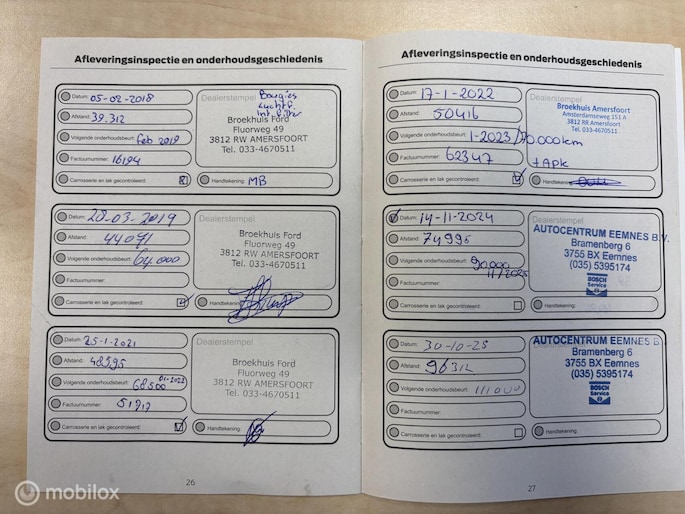 Afleveringsinspectie en onderhoudsgeschiedenis
Datum: 05-02-2018
Afstand: 39.312
Volgende onderhoudsbeurt: feb 2019
Factuurnummer: 16194
Carrosserie en lak gecontroleerd:
Dealerstempel
Bougies
Luchtf.
Int. filter
Broekhuis Ford
Fluorweg 49
3812 RW AMERSFOORT
Tel. 033-4670511
Handtekening: MB
Datum: 20-03-2019
Afstand: 44071
Volgende onderhoudsbeurt: 64.000
Factuurnummer:
Carrosserie en lak gecontroleerd:
Dealerstempel
Broekhuis Ford
Fluorweg 49
3812 RW AMERSFOORT
Tel. 033-4670511
Handtekening:
Datum: 25-1-2021
Afstand: 48595
Volgende onderhoudsbeurt: 68500 01-2022
Factuurnummer: 51717
Carrosserie en lak gecontroleerd:
Dealerstempel
Broekhuis Ford
Fluorweg 49
3812 RW AMERSFOORT
Tel. 033-4670511
Handtekening:
26
Afleveringsinspectie en onderhoudsgeschiedenis
Datum: 17-1-2022
Afstand: 50416
Volgende onderhoudsbeurt: 1-2023/70.000km
Factuurnummer: 62347
Carrosserie en lak gecontroleerd:
Dealerstempel
Broekhuis Amersfoort
Amsterdamseweg 151 A
3812 RR Amersfoort
Tel. 033-4670511
+APK
Handtekening:
Datum: 14-11-2024
Afstand: 74995
Volgende onderhoudsbeurt: 90.000
11/2025
Factuurnummer:
Carrosserie en lak gecontroleerd:
AUTOCENTRUM EEMNES B.V.
Bramenberg 6
3755 BX Eemnes
(035) 5395174
BOSCH
Service
Handtekening:
Datum: 30-10-25
Afstand: 96312
Volgende onderhoudsbeurt: 111000
Factuurnummer:
Carrosserie en lak gecontroleerd:
AUTOCENTRUM EEMNES B.
Bramenberg 6
3755 BX Eemnes
(035) 5395174
BOSCH
Service
Handtekening:
27
mobilox